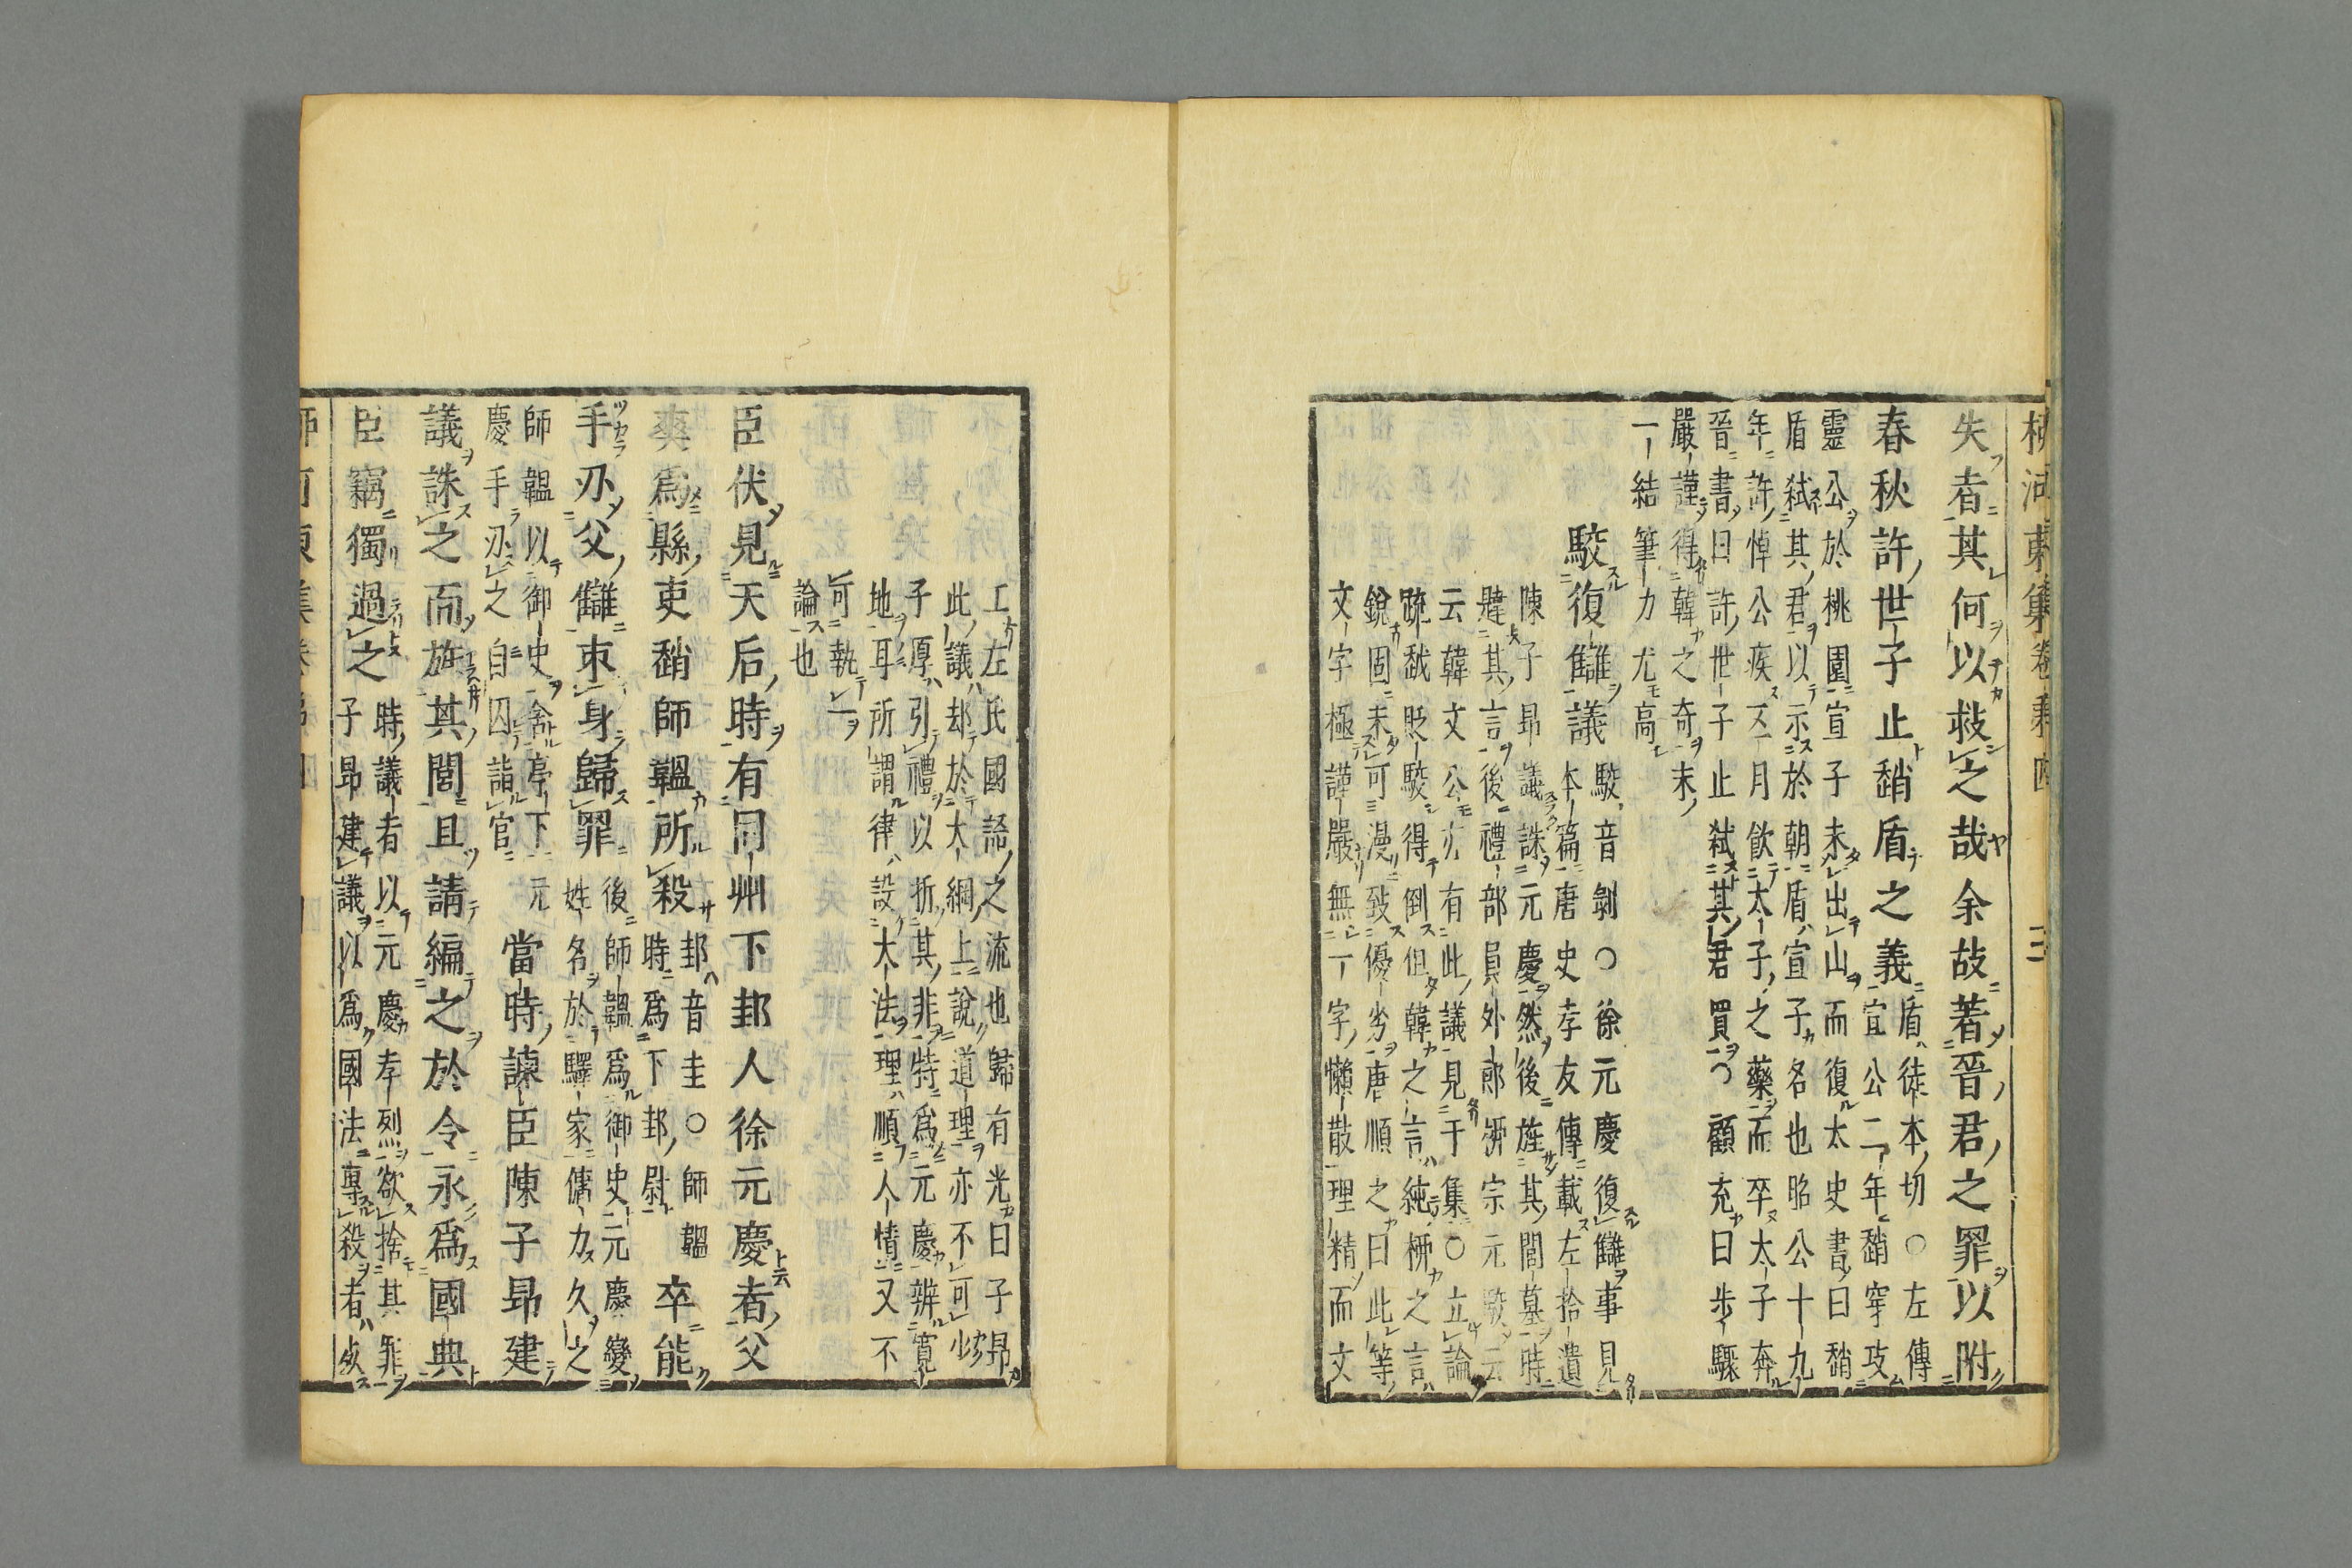 柳河東集卷第四 三
失者其何以救之哉余故著晉君之罪以附
春秋許世子止趙盾之義
盾徒本切○左傳
宣公二年趙穿攻
靈公於桃園宣子未出山而復太史書曰趙
盾弑其君以示於朝盾宣子名也昭公十九
年許悼公疾五月飲太子之藥而卒太子奔
晉書曰許世子止弑其君買○顧充曰步驟
嚴謹得韓之奇末
一結筆力尤高
駮復讎議
駮音剝○徐元慶復讎事見
本篇唐史孝友傳載左拾遺
陳子昻議誅元慶然後旌其閭墓時
韙其言後禮部員外郎柳宗元駮云
云韓文公亦有此議見于集○立論
䟽戱貶駮得倒但韓之言純柳之言
銳固未可漫致優劣唐順之曰此等
文字極謹嚴無一字懶散理精而文
工左氏國語之流也歸有光曰子昻
此議却於大綱上說道理亦不可少
子厚引禮以折其非特爲元慶辨寬
地耳所謂律設大法理順人情又不
可執一
論也
臣伏見天后時有同州下邽人徐元慶者父
爽爲縣吏趙師韞所殺
邽音圭○師韞
時爲下邽尉
卒能
手刃父讎束身歸罪
後師韞爲御史元慶變
姓名於驛家傭力久之
師韞以御史舍亭下元
慶手刃之自囚詣官
當時諫臣陳子昻建
議誅之而旌其閭且請編之於令永爲國典
臣竊獨過之
時議者以元慶孝烈欲捨其罪
子昻建議以爲國法專殺者死
柳河東集卷第四